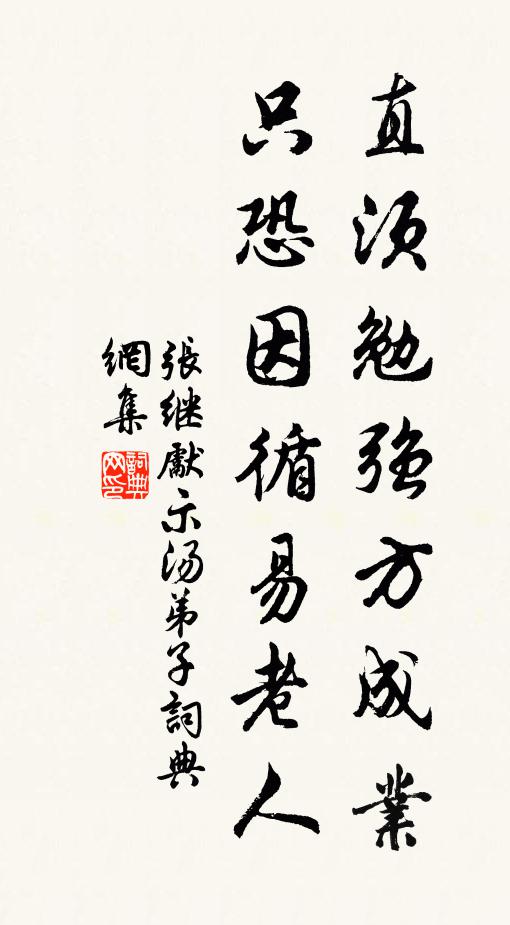 直須勉強方成業
只恐因循易老人
張继獻示湯弟子詞典
網集
詞典網印